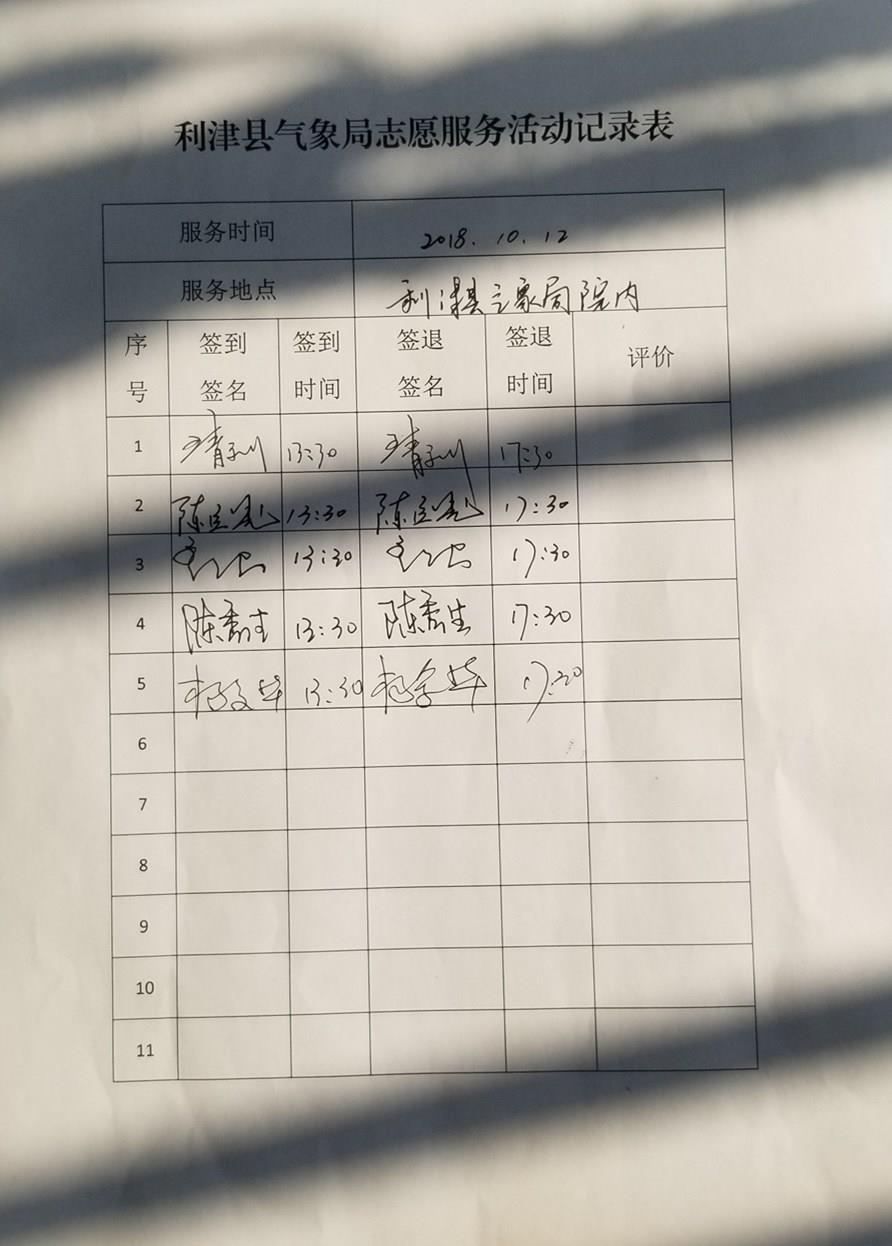 利津县气象局志愿服务活动记录表
服务时间 2018.10.12
服务地点 利津县气象局院内
序号 签到签名 签到时间 签退签名 签退时间 评价
1 13:30 17:30
2 13:30 17:30
3 13:30 17:30
4 陈秀生 13:30 陈秀生 17:30
5 13:30 17:30
6
7
8
9
10
11